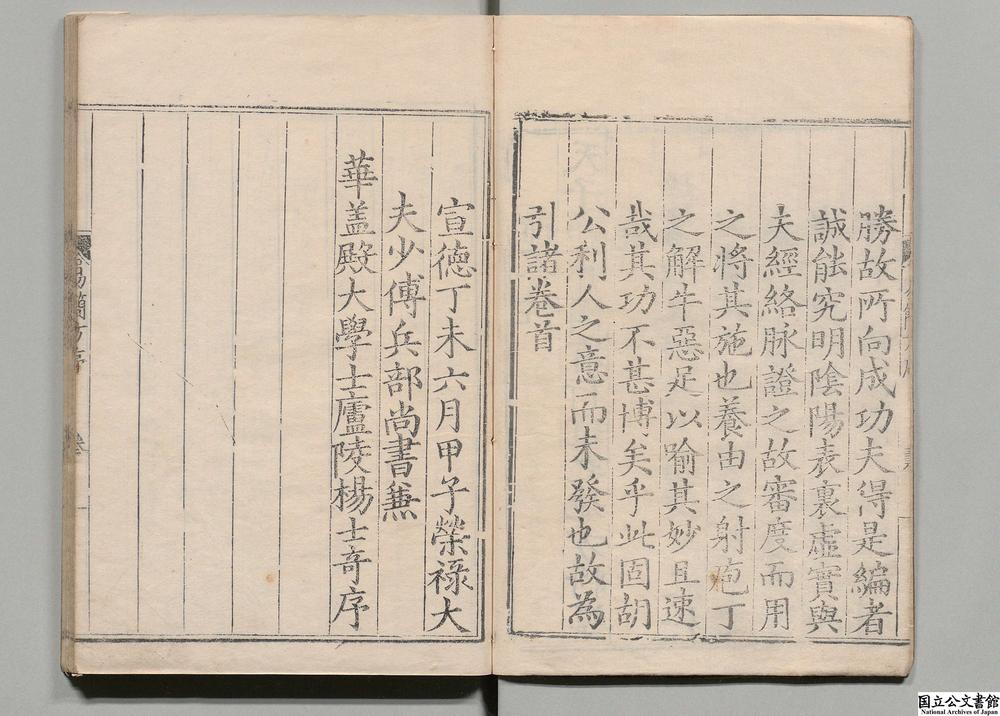 勝故所向成功夫得是編者
誠能究明陰陽表裏虛實與
夫經絡脉證之故審度而用
之將其施也養由之射庖丁
之解牛惡足以喻其妙且速
哉其功不甚博矣乎此固胡
公利人之意而未發也故為
引諸卷首
宣德丁未六月甲子榮祿大
夫少傅兵部尚書兼
華盖殿大學士廬陵楊士竒序
簡方序
卷
国立公文書館
National Archives of Japan